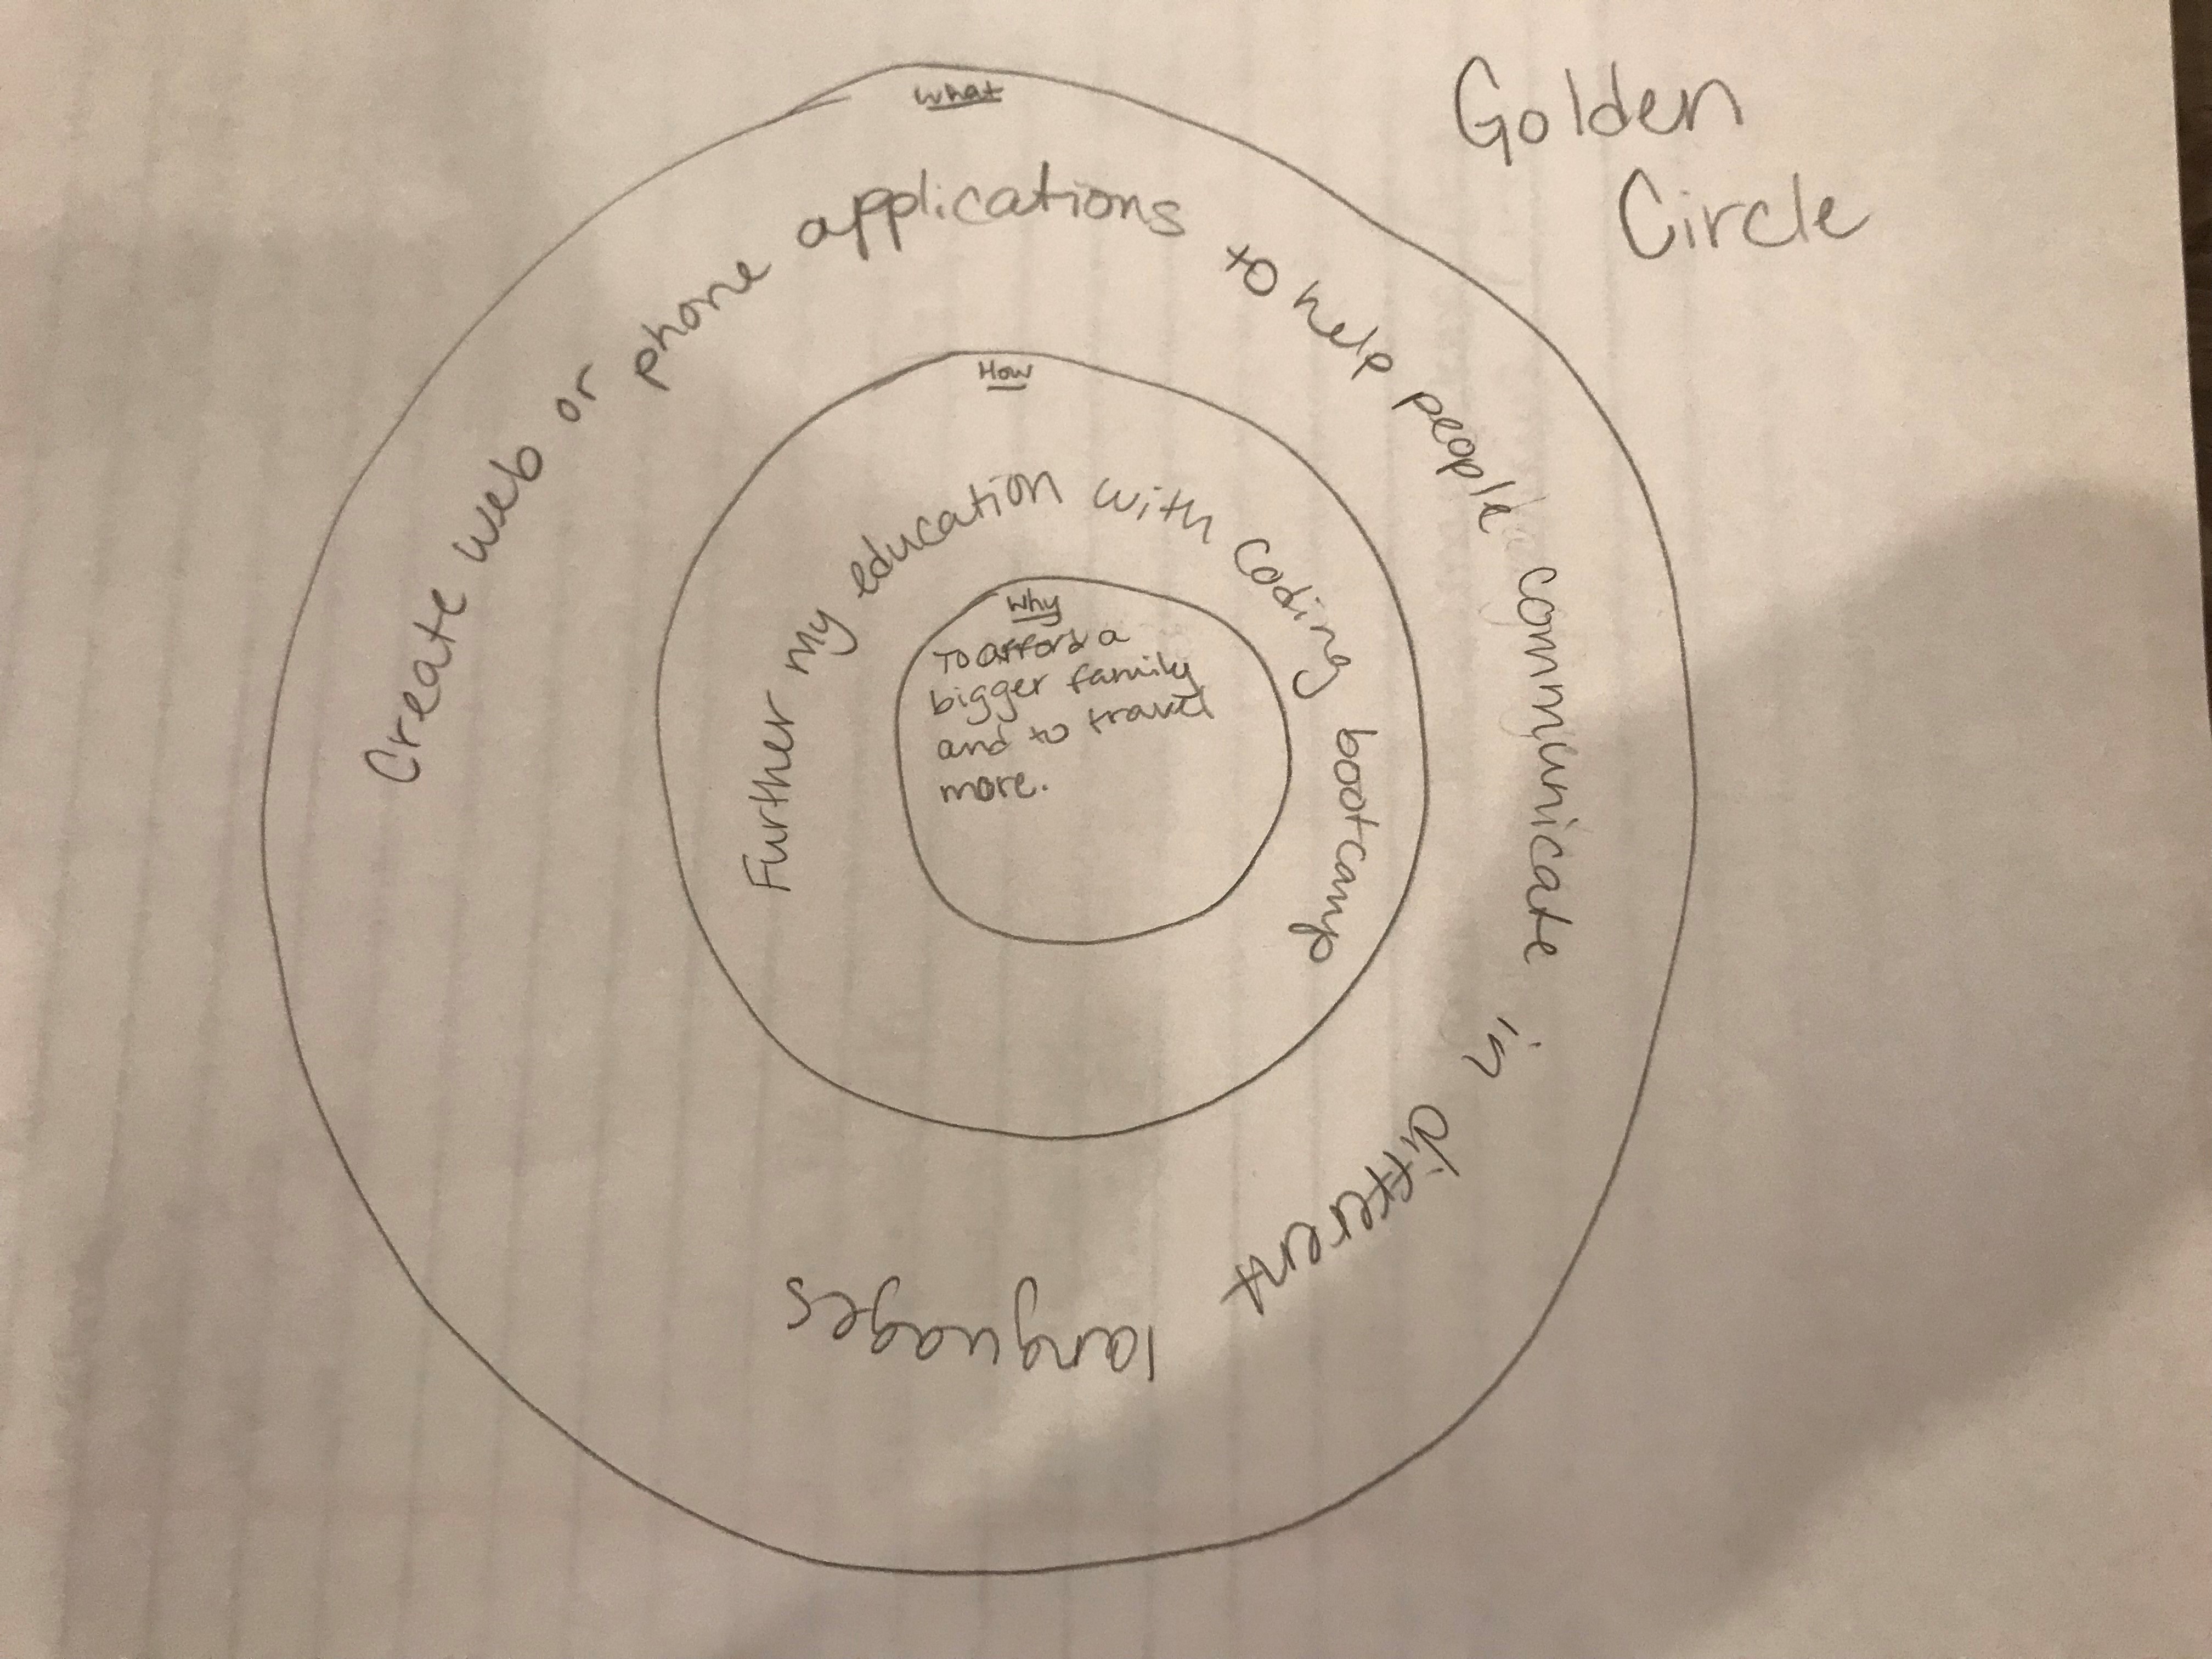 Golden
Circle
What
Create web or phone applications to help people communicate in different languages
How
Further my education with coding bootcamp
Why
To afford a
bigger family
and to travel
more.